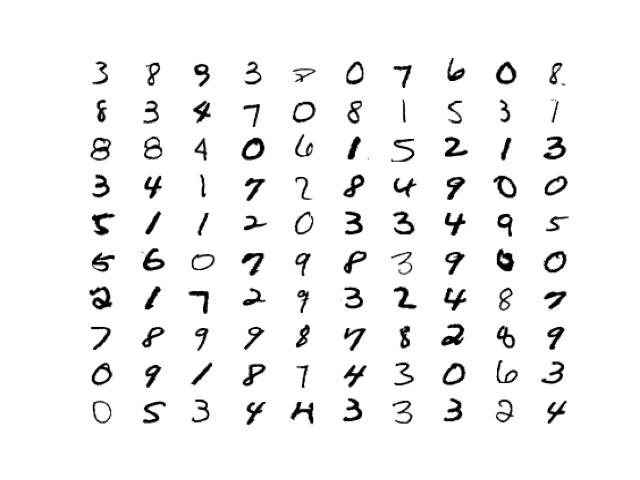 3 8 9 3 0 7 6 0 8
8 3 4 7 0 8 1 5 3 1
8 8 4 0 6 1 5 2 1 3
3 4 1 7 2 8 4 9 0 0
5 1 1 2 0 3 3 4 9 5
5 6 0 7 9 8 3 9 0 0
2 1 7 2 9 3 2 4 8 7
7 8 9 9 8 7 8 2 8 9
0 9 1 8 7 4 3 0 6 3
0 5 3 4 4 3 3 3 2 4